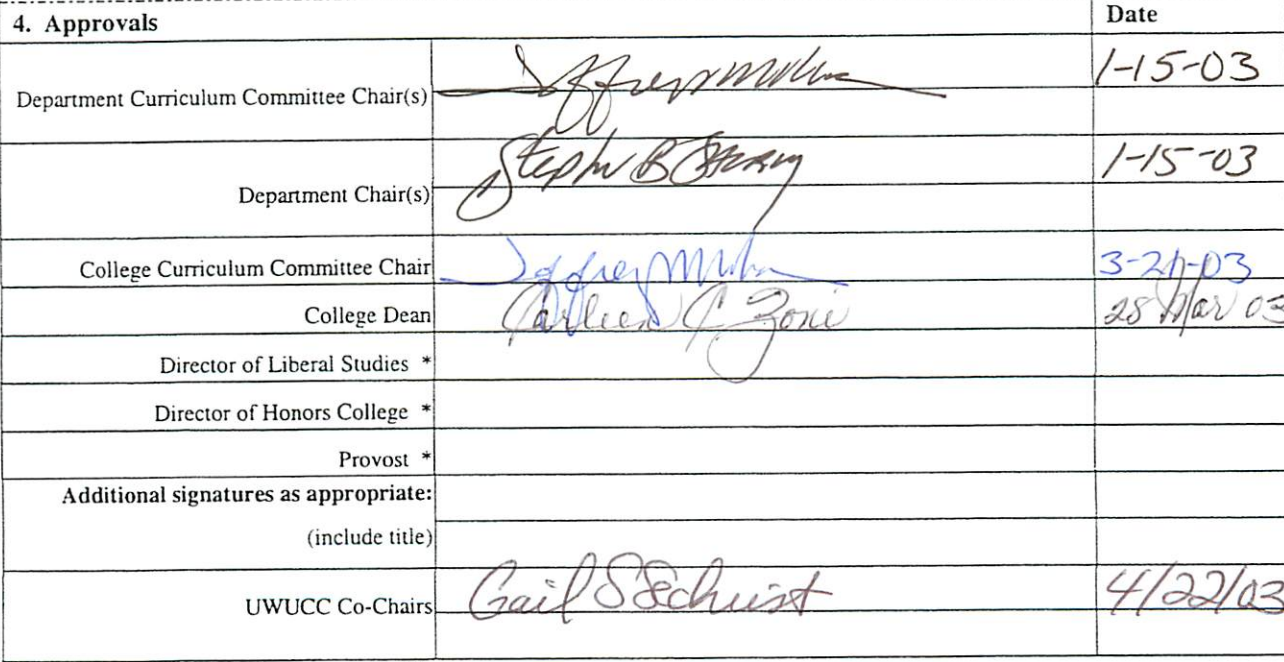 4. Approvals Date
Department Curriculum Committee Chair(s) 1-15-03
Department Chair(s) 1-15-03
College Curriculum Committee Chair 3-21-03
College Dean Carleen C. Zoni 28 Mar 03
Director of Liberal Studies *
Director of Honors College *
Provost *
Additional signatures as appropriate:
(include title)
UWUCC Co-Chairs Gail S Sechrist 4/22/03